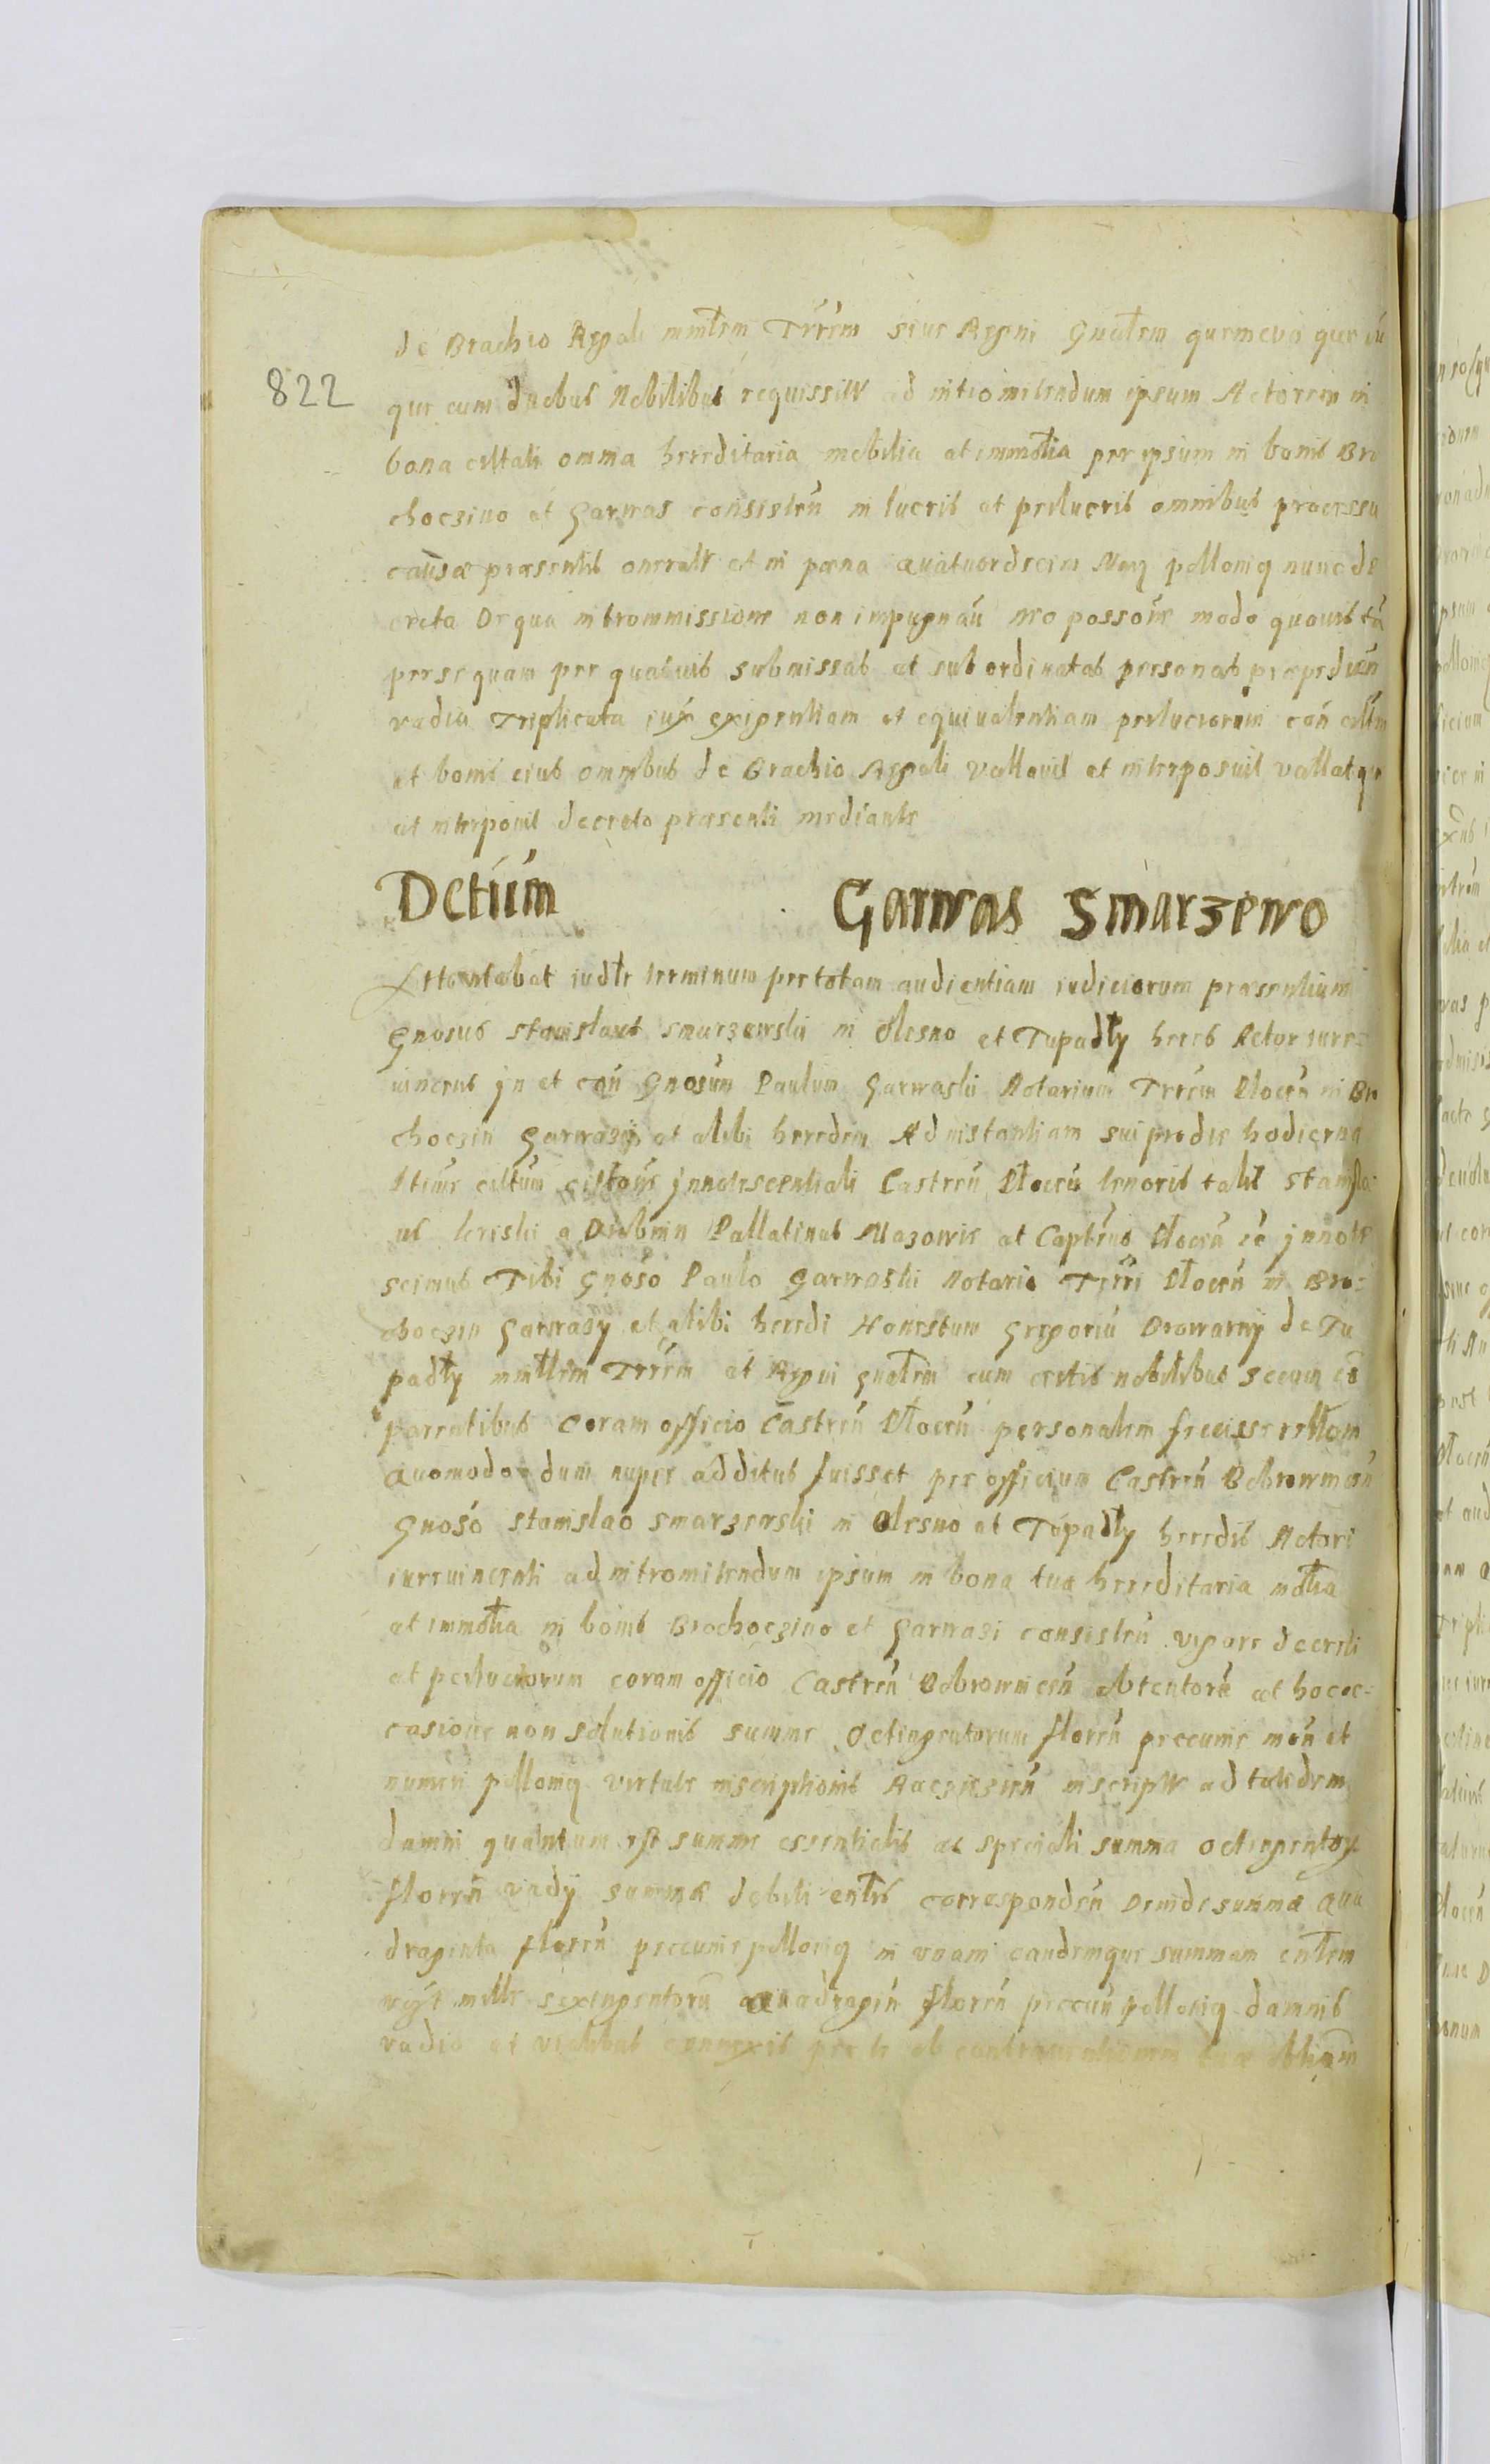 de Brachio Regali mnłem Trrem siue Regni Gnałem quemcvnque
822
qui cum duobus Nobilibus requissitt ad intromitendum ipsum Actorem in
bona cittati omnia haereditaria mobilia et immołia per ipsum in bonis Bro
choczino et Garwas consisteń in lucris et perlucris omnibus processu
causae praesentis oneratt et in paena Quatuordecim Mrq pollonicq nunc de
creta De qua intrommissione non impugnań nec possoñe modo quouis tā
per se quam per quasuis submissas et subordinatas personas praepedień
vadia Triplicata iux exigentiam et equiualentiam perlucrorum coń cittm
et bonis eius omnibus de Brachio Regali vallauit et interposuit vallatque
et interponit decreto praesenti mediante
Detūm Garwas Smarzewo
Attentabat iudłr terminum per totam audientiam iudiciorum praesentium
Gnosus Stanislaus Smarzewski in Olesno et Tupadły heres Actor iure
uincens jn et coń Gnosum Paulum Garwaski Notarium Trrem Płoceń in Bro
choczin Garwazy et alibi heredem Ad instantiam sui pro die hodierna
ltime cittum cittoñe jnnotescentiali Castreń Płoceń tenoris talis Stanisla
us kriski a Drobnin Pallatinus Mazowie et Captneus Płoceń ec jnnote
scimus Tibi Gnoso Paulo Garwaski Notario Trrri Płoceń in Bro
choczin Garwasy et alibi heredi Honestum Gregoriū Browarny de Tu
padły mnłlem Trrem et Regni gnałem cum certis nobilibus secum co
parentibus coram officio Castreń Płoceń personalem fecisse rellom
Quomodo dum nuper additus fuisset per officium Castreń Bobrownicen
Gnoso Stanislao Smarzewski in Olesno et Tupadły heredis Actori
iureuincenti ad intromitendum ipsum in bona tua haereditaria mołia
et immołia in bonis Brochoczino et Garwazi consisteń vigore decreti
et perlucrorum coram officio Castreń Bobrowniceń obtentorū et hoc oc
casione non solutionis summe Octingentorum floreń peccunie moń et
numeri pollonicq virtute inscriptionis Raczizień inscriptt ad totidem
damni quantum est summe essentialis ac speciali summa octingentor
floreń vadij summae debiti entłis correspondeń Deinde summae Qua
draginta floreń peccunie pollonicq in vnam eandemque summam entłem
mille sexingentorū quadragiń floreń peccuń pollonicq damnis
vadio et vadibus connexis per te ob contrauentionem tuae obligaōm